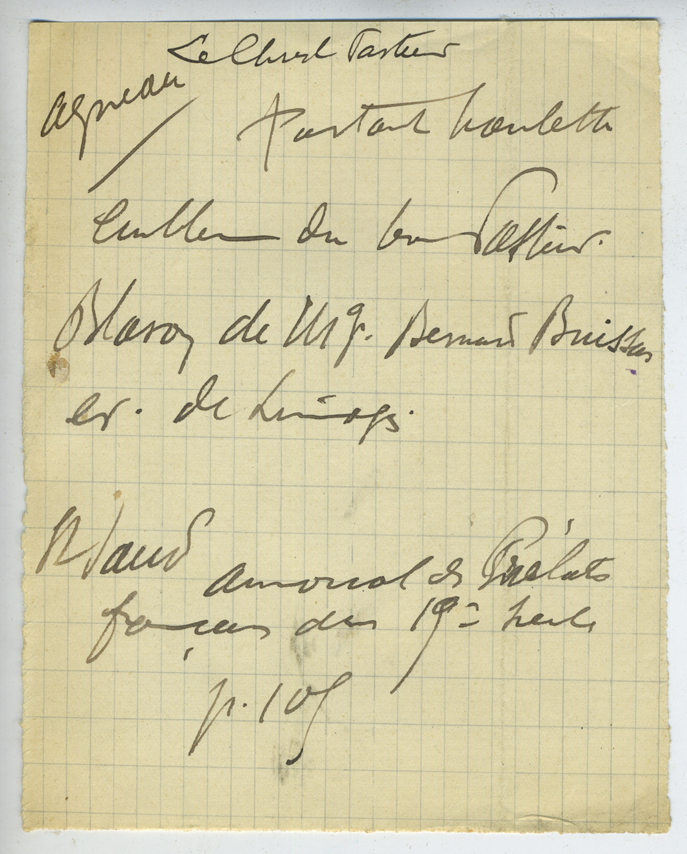 Le Christ Pasteur
agneau
portant houlette
Emblème du bon Pasteur.
Blason de Mgr. Bernard Buissas
ev. de Limoges.
armorial des Prélats
français du 19e siècle
p. 105